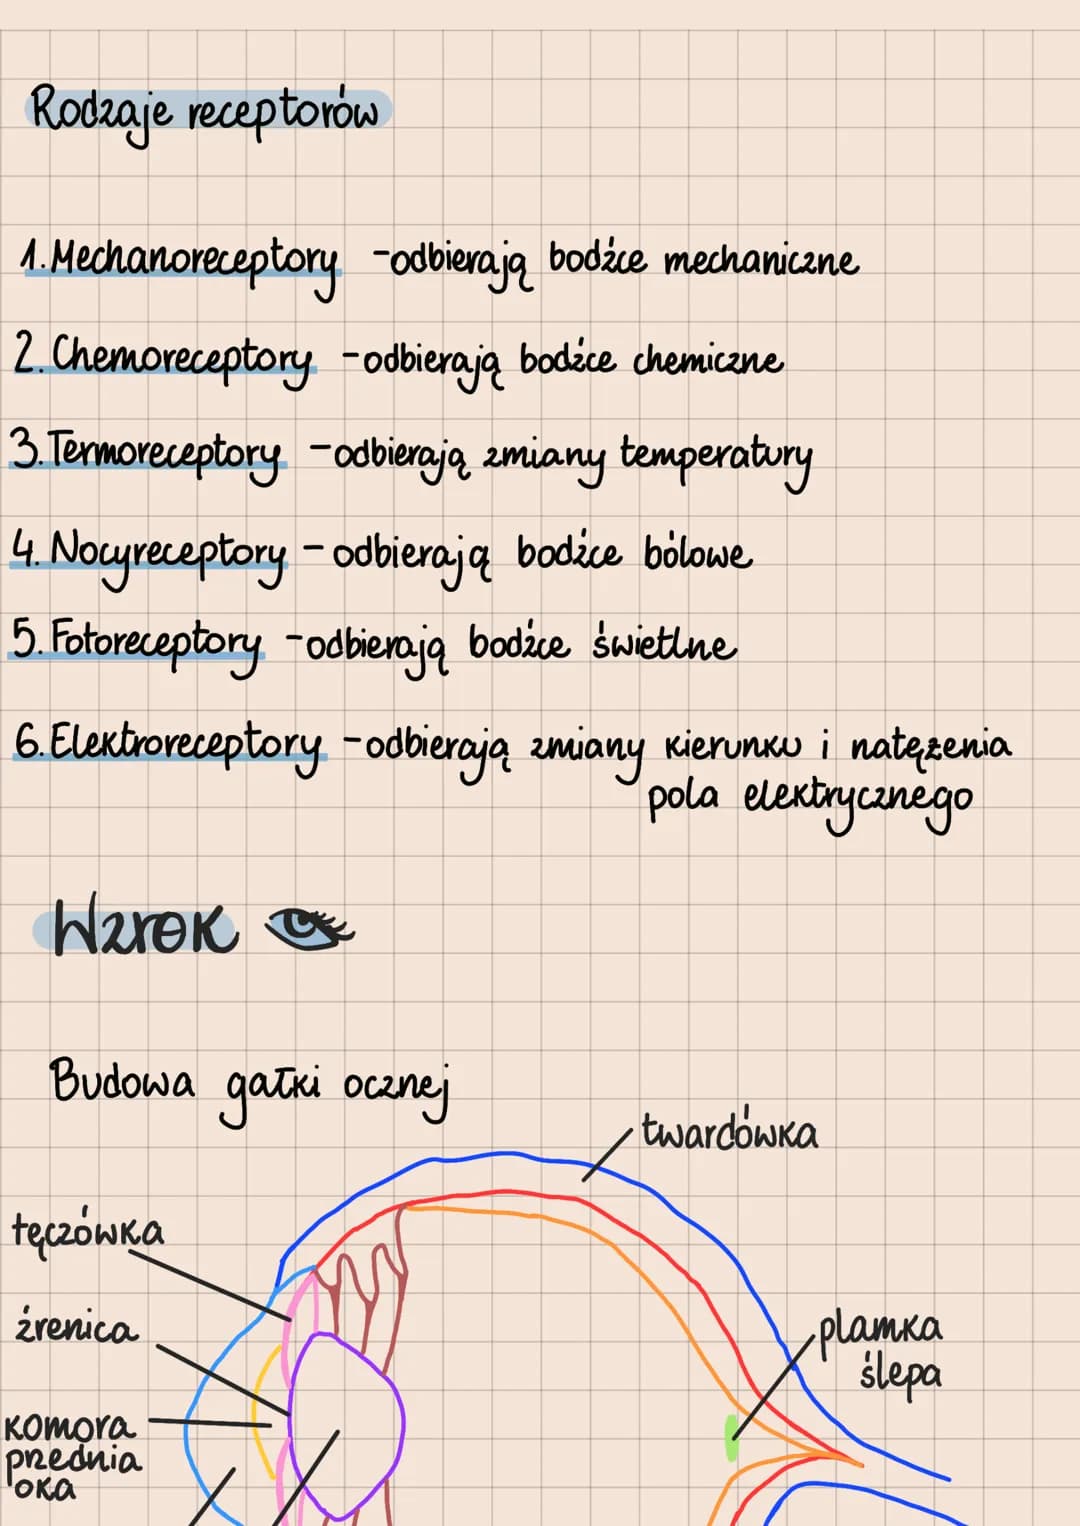 Rodzaje receptorów
1. Mechanoreceptory -odbierają bodźce mechaniczne
2. Chemoreceptory -odbierają bodźce chemiczne
3. Termoreceptory -odbierają zmiany temperatury
4. Nocyreceptory - odbierają bodźce bólowe
5. Fotoreceptory -odbierają bodźce świetlne
6. Elektroreceptory -odbierają zmiany kierunku i natężenia
pola elektrycznego
Wzrok
Budowa gałki ocznej
twardówka
tęczówka
źrenica
plamka
ślepa
komora
przednia
oka